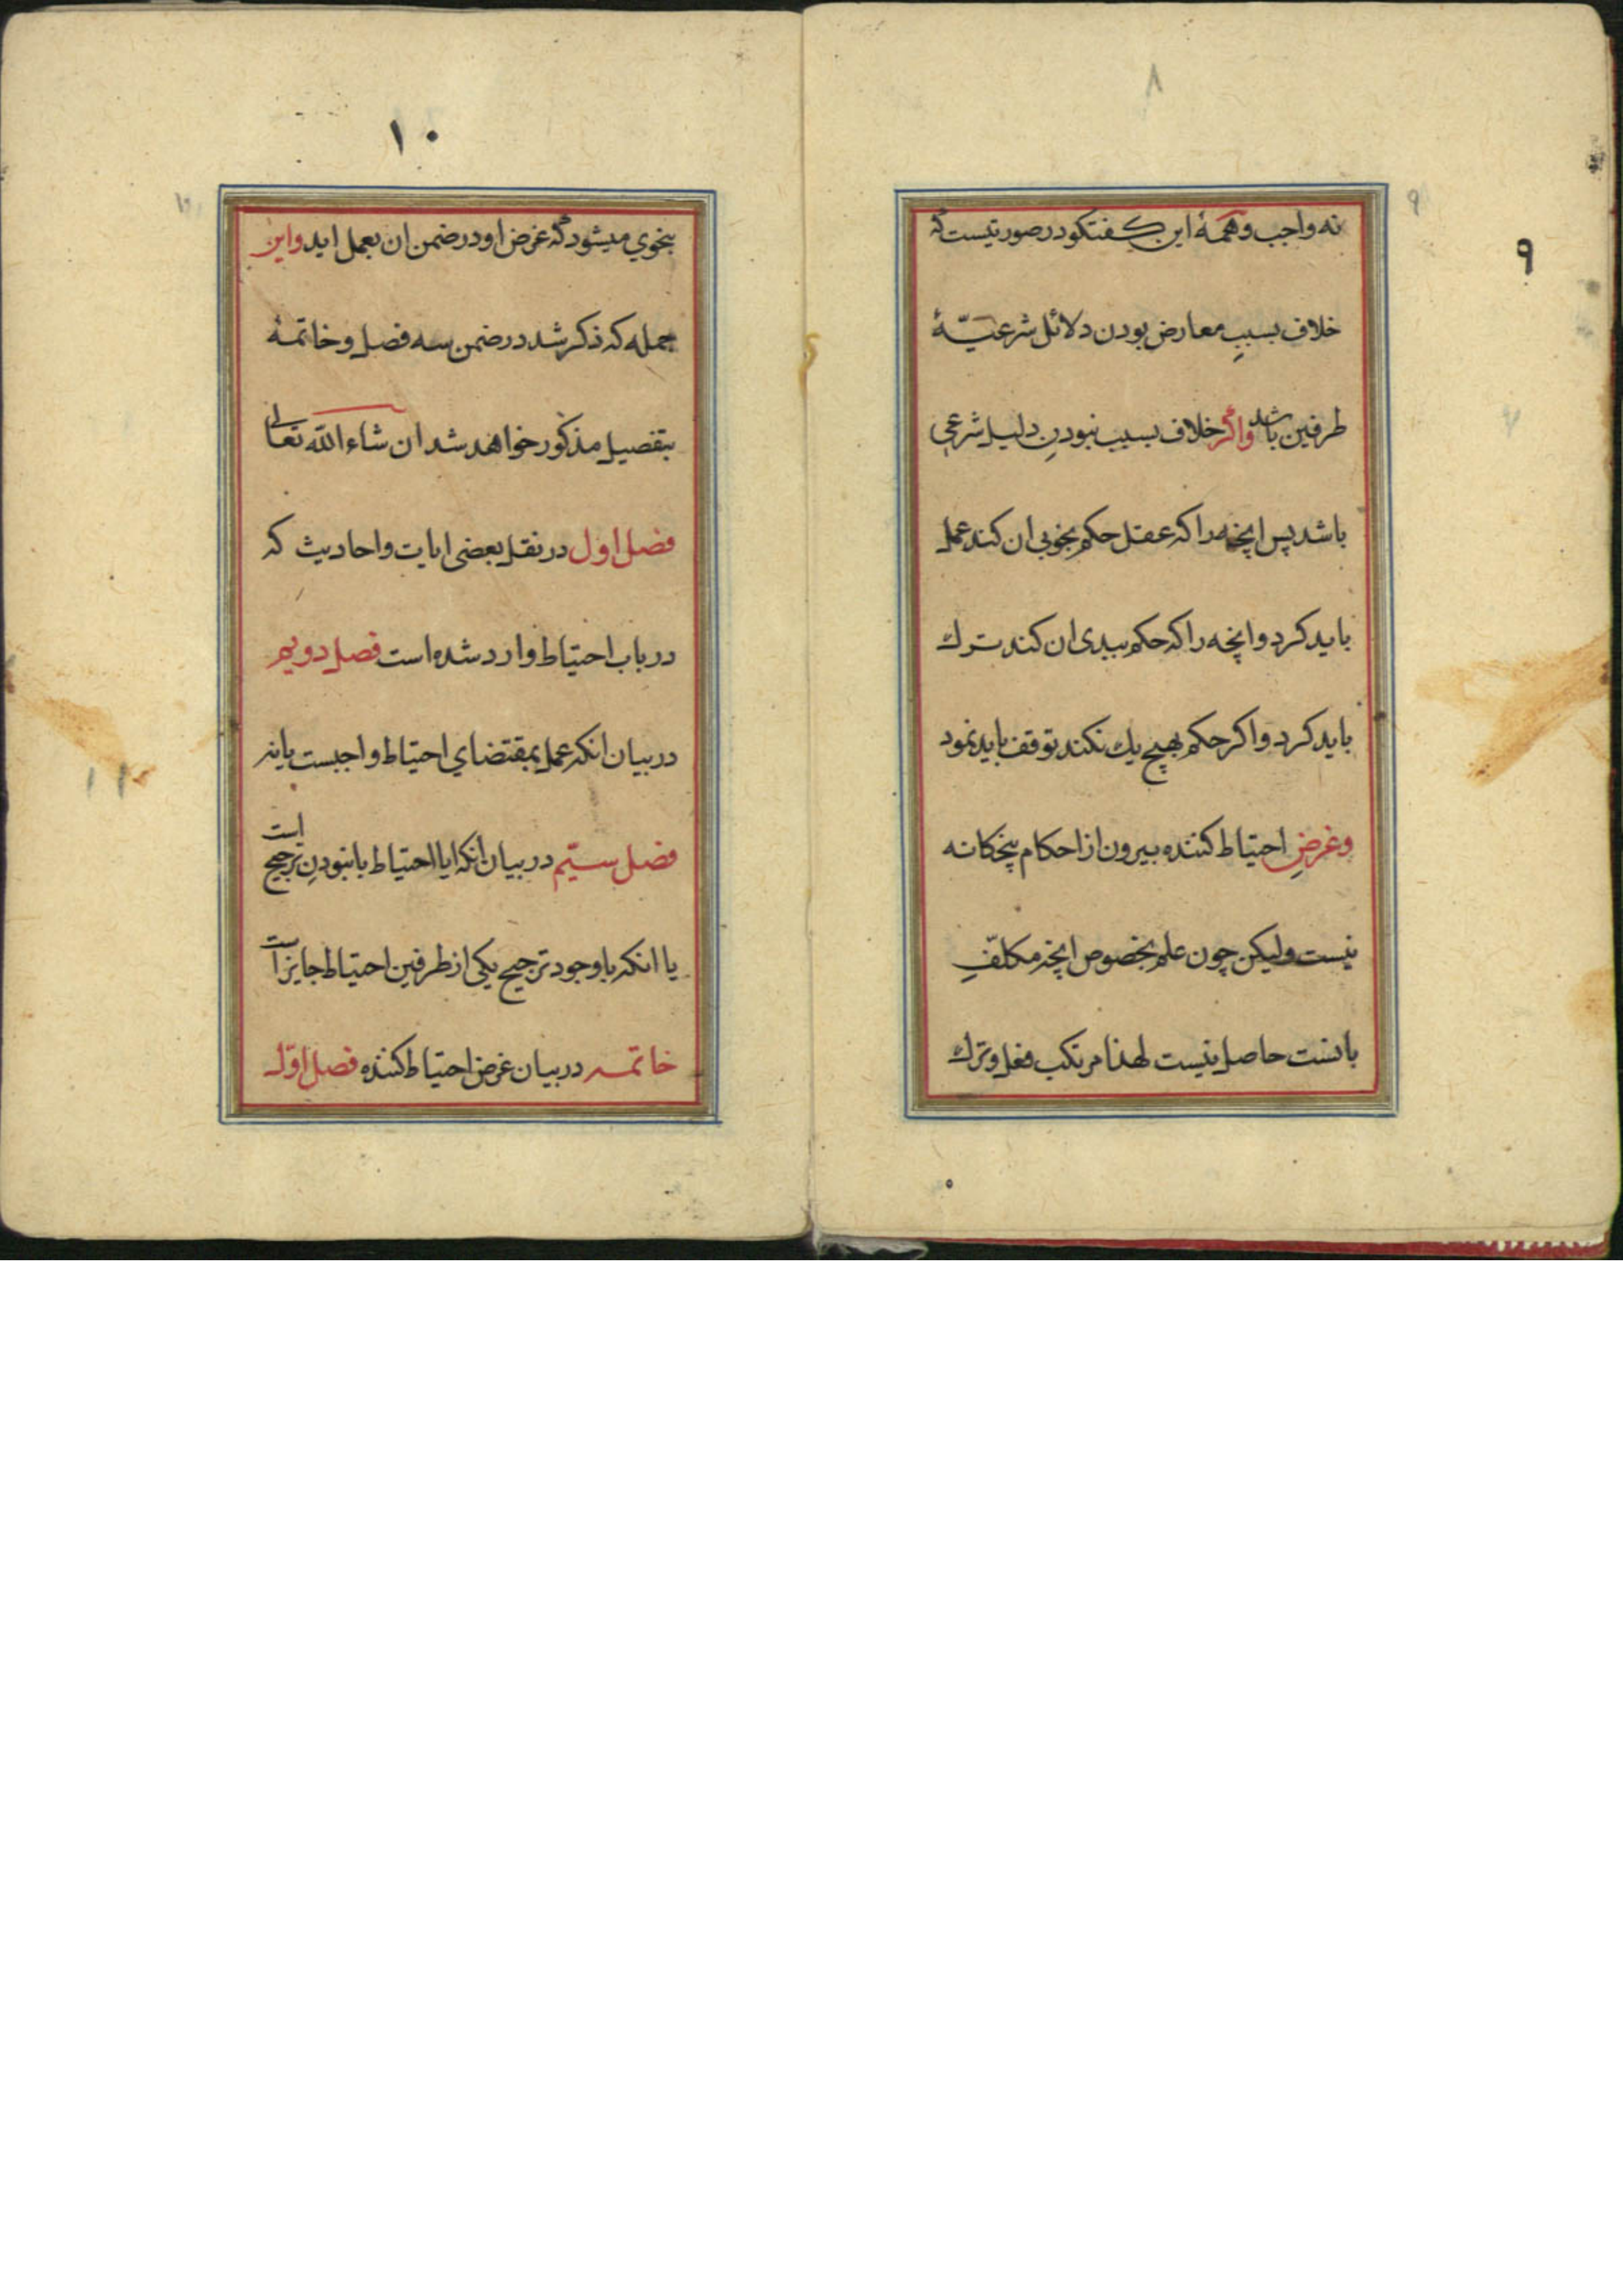 ۸
۹
۹
نه واجب و همهٔ این کفتکو در صورتیست که
خلاف بسببِ معارض بودن دلائل شرعیّهٔ
طرفین باشد واکر خلاف بسبب نبودنِ دلیل شرعی
باشد پس انچه را که عقل حکم بخوبی ان کند عمل
باید کرد و انچه را که حکم ببدی ان کند ترك
باید کرد و اکر حکم بهیچ یك نکند توقف باید نمود
وغرضِ احتیاط کننده بیرون از احکام پنجکانه
نیست ولیکن چون علم بخصوص انچه مکلّفِ
بانست حاصل نیست لهذا مرتکب فعل و ترك
۱۰
بنحوي میشود که غرض او در ضمن ان بعمل اید واین
جمله که ذکر شد در ضمن سه فصل و خاتمهٔ
بتفصیل مذکور خواهد شد ان شاء الله تعالی
فصل اول در نقل بعضی ایات و احادیث که
در باب احتیاط وارد شده است فصل دویم
در بیان انکه عمل بمقتضاي احتیاط واجبست یا نه
فصل سیّم در بیان انکه ایا احتیاط با نبودنِ ترجیح است
یا انکه با وجود ترجیح یکی از طرفین احتیاط جایز است
خاتمه در بیان غرض احتیاط کننده فصل اوّل
۱۱